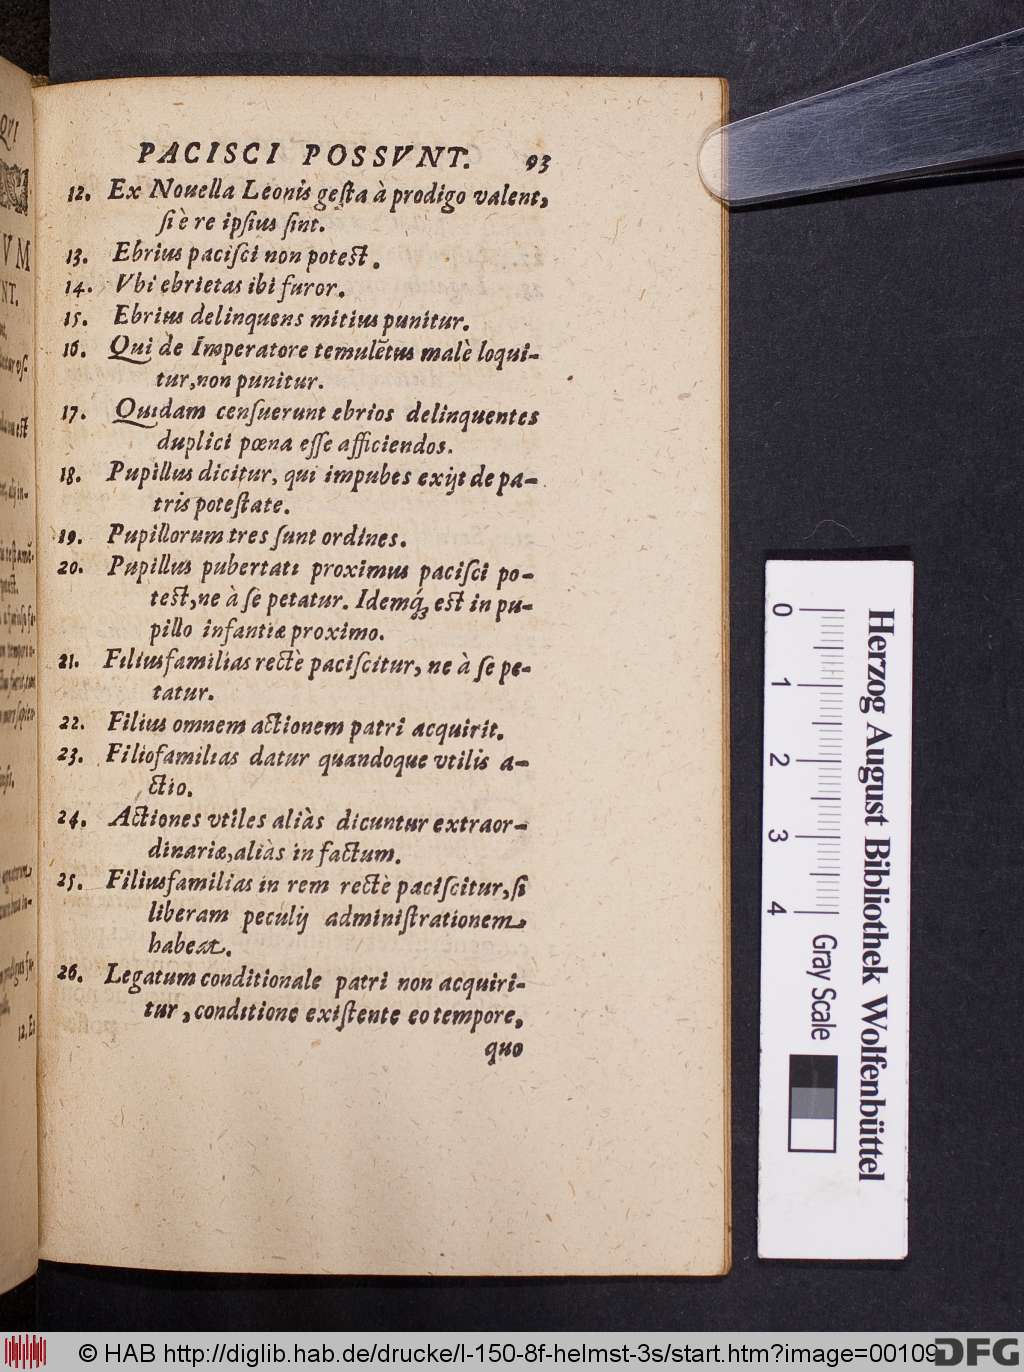 PACISCI POSSVNT. 93
12. Ex Nouella Leonis geſta à prodigo valent,
ſi è re ipſius ſint.
13. Ebrius paciſci non poteſt.
14. Vbi ebrietas ibi furor.
15. Ebrius delinquens mitius punitur.
16. Qui de Imperatore temulẽtus malè loqui-
tur, non punitur.
17. Quidam cenſuerunt ebrios delinquentes
duplici pœna eſſe afficiendos.
18. Pupillus dicitur, qui impubes exijt de pa-
tris poteſtate.
19. Pupillorum tres ſunt ordines.
20. Pupillus pubertati proximus paciſci po-
teſt, ne à ſe petatur. Idemq́ꝫ eſt in pu-
pillo infantiæ proximo.
21. Filiusfamilias rectè paciſcitur, ne à ſe pe-
tatur.
22. Filius omnem actionem patri acquirit.
23. Filiofamilias datur quandoque vtilis a-
ctio.
24. Actiones vtiles aliàs dicuntur extraor-
dinariæ, aliàs in factum.
25. Filiusfamilias in rem rectè paciſcitur, ſi
liberam peculij adminiſtrationem
habeat.
26. Legatum conditionale patri non acquiri-
tur, conditione exiſtente eo tempore,
quo
0 1 2 3 4
Gray Scale
Herzog August Bibliothek Wolfenbüttel
© HAB http://diglib.hab.de/drucke/l-150-8f-helmst-3s/start.htm?image=00109
DFG